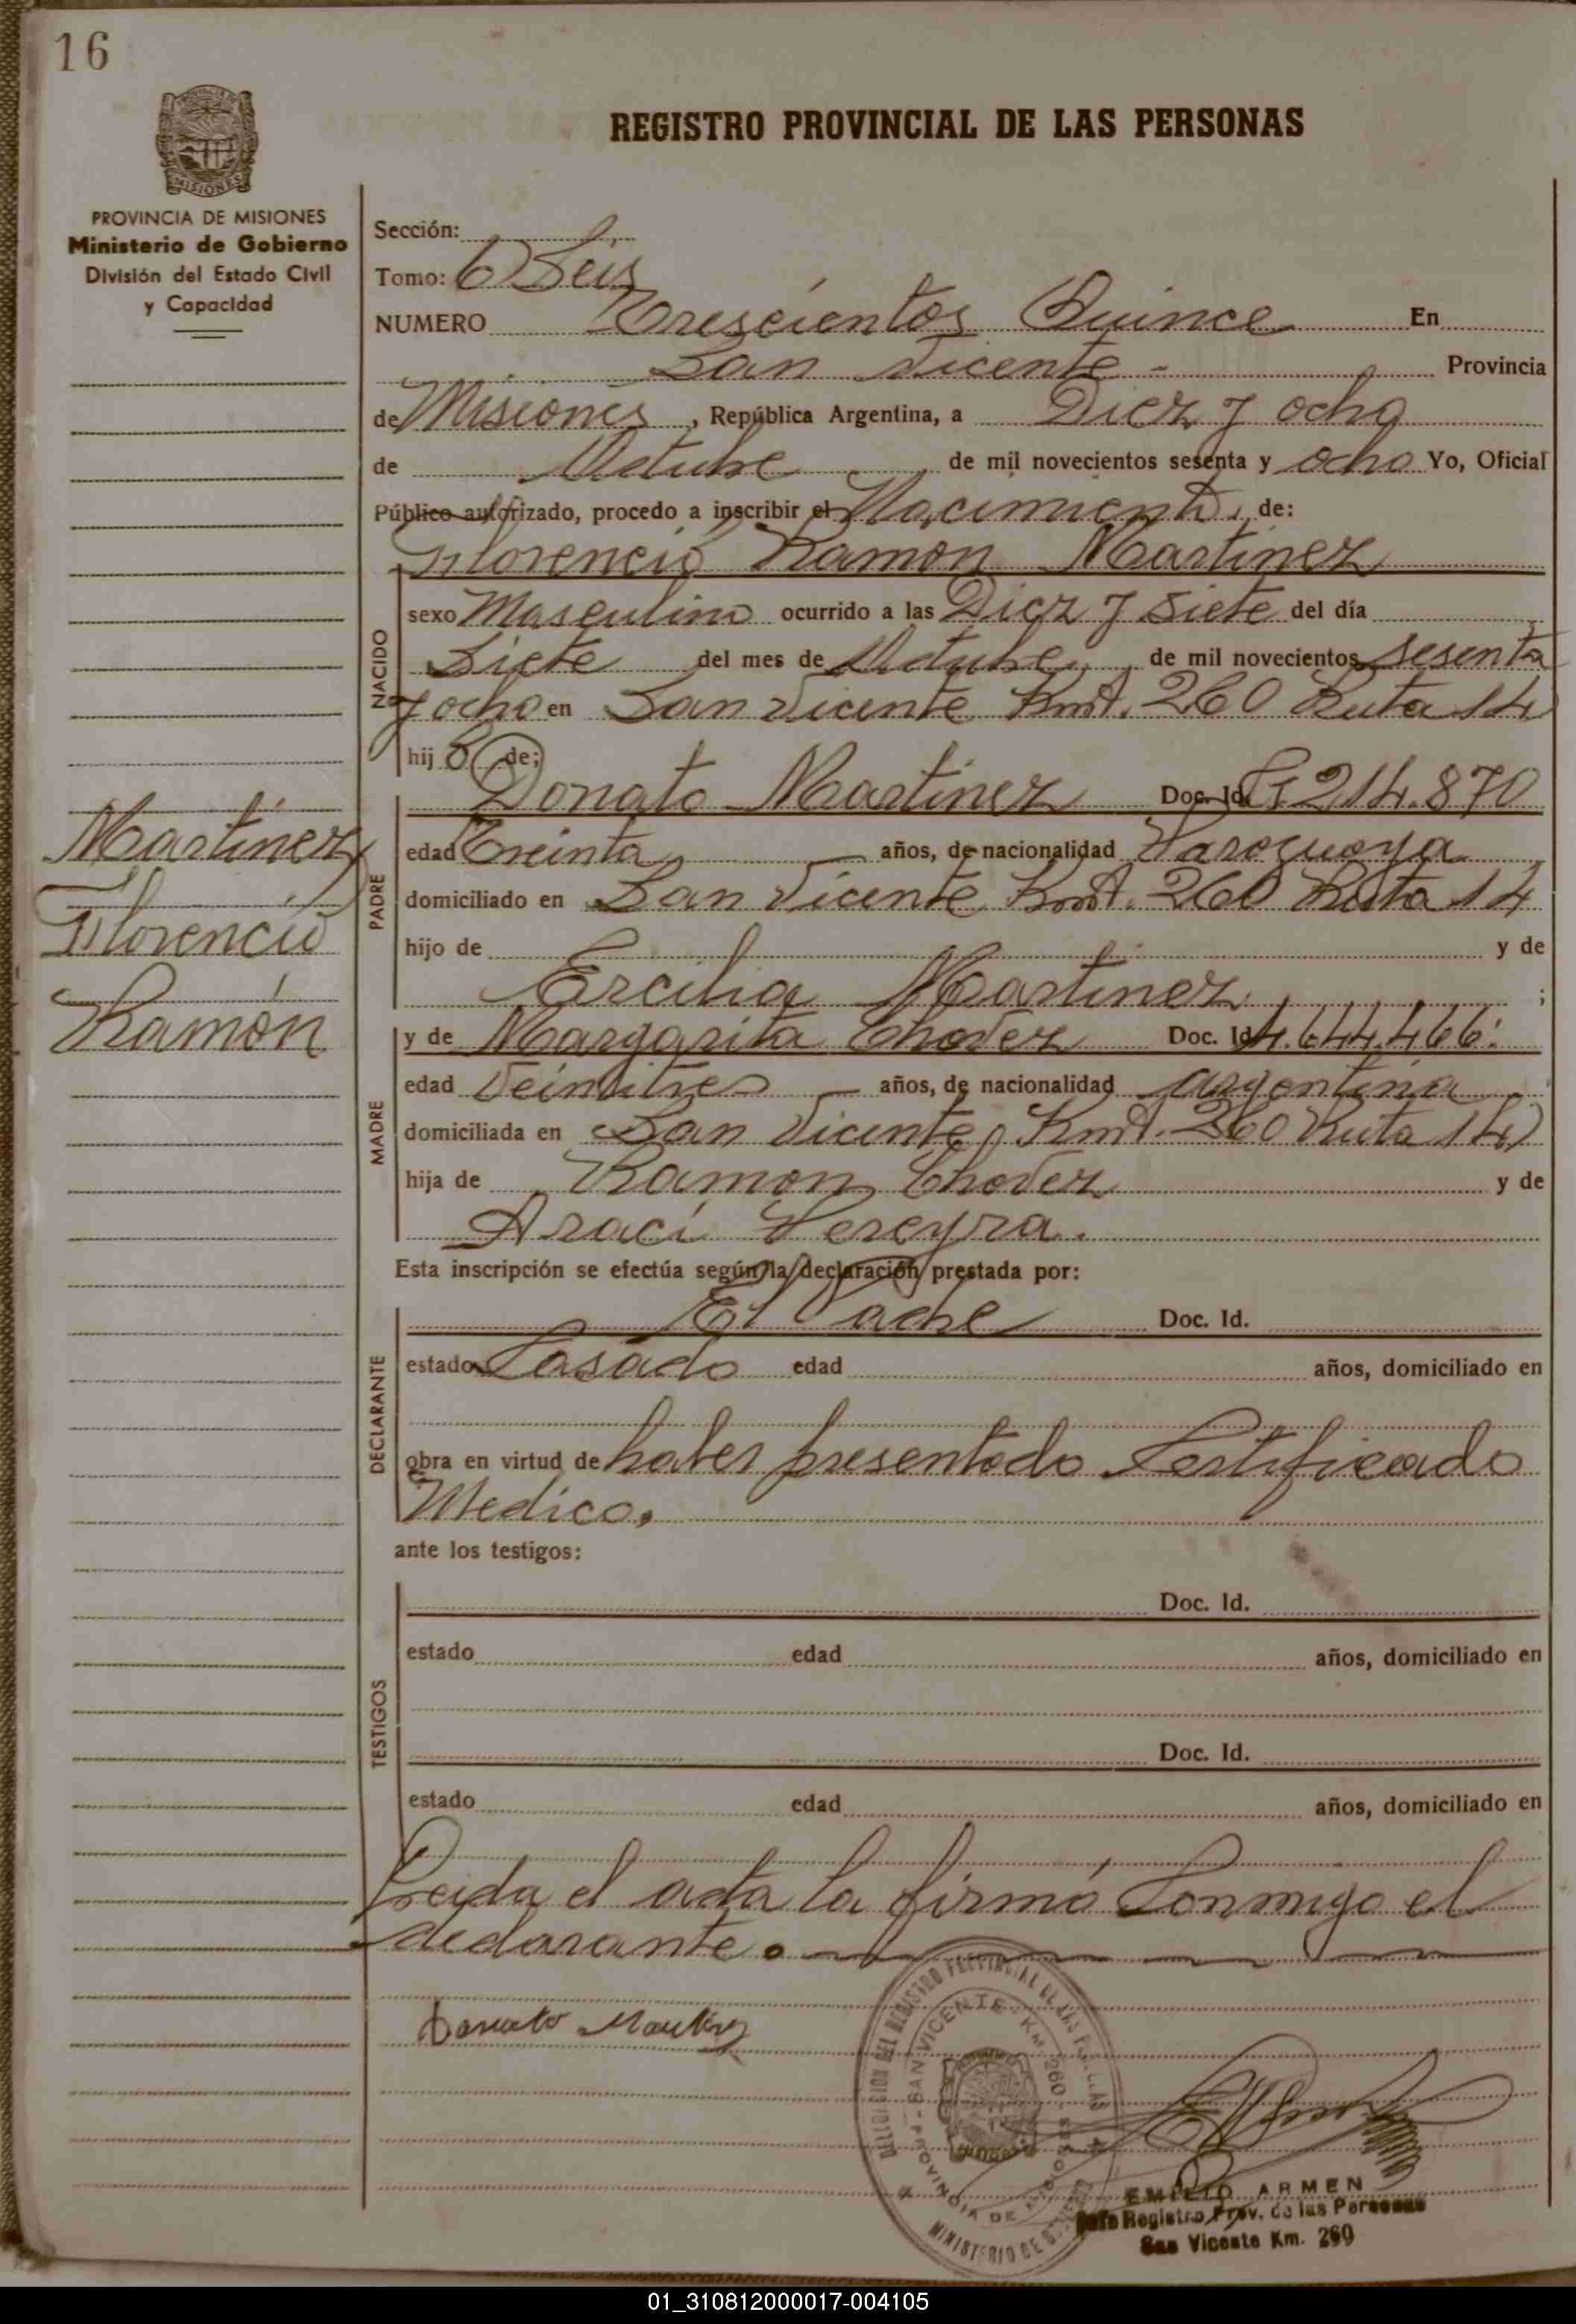 16
REGISTRO PROVINCIAL DE LAS PERSONAS
MISIONES
PROVINCIA DE MISIONES
Ministerio de Gobierno
División del Estado Civil
y Capacidad
Sección:
Tomo: 6 Seis
NUMERO Trescientos Quince En
San Vicente - Provincia
de Misiones, República Argentina, a Diez y ocho
de Octubre de mil novecientos sesenta y ocho Yo, Oficial
Público autorizado, procedo a inscribir el Nacimiento de:
Florencio Ramon Martinez
NACIDO
sexo Masculino ocurrido a las Diez y Siete del día
Siete del mes de Octubre de mil novecientos sesenta
y ocho en San Vicente Kmt. 260 Ruta 14
hijo de;
Martinez
Florencio
Ramón
PADRE
Donato Martinez Doc. Id. 214.870
edad Treinta años, de nacionalidad Paraguaya
domiciliado en San Vicente Kmt. 260 Ruta 14
hijo de y de
Ercilia Martinez ;
MADRE
y de Margarita Chavez Doc. Id. 4.644.466
edad Veintitres años, de nacionalidad argentina
domiciliada en San Vicente Kmt. 260 Ruta 14
hija de Ramon Chavez y de
Araci Pereyra.
Esta inscripción se efectúa según la declaración prestada por:
DECLARANTE
El Padre Doc. Id.
estado Casado edad años, domiciliado en
obra en virtud de haber presentado Certificado
Medico.
ante los testigos:
TESTIGOS
Doc. Id.
estado edad años, domiciliado en
Doc. Id.
estado edad años, domiciliado en
Leida el acta la firmó Conmigo el
declarante.
Donato Martinez
DELEGACION DEL REGISTRO PROVINCIAL DE LAS PERSONAS
SAN VICENTE - Km 260
PROVINCIA DE MISIONES
MINISTERIO DE GOBIERNO
EMILIO ARMEN
Jefe Registro Prov. de las Personas
San Vicente Km. 260
01_310812000017-004105